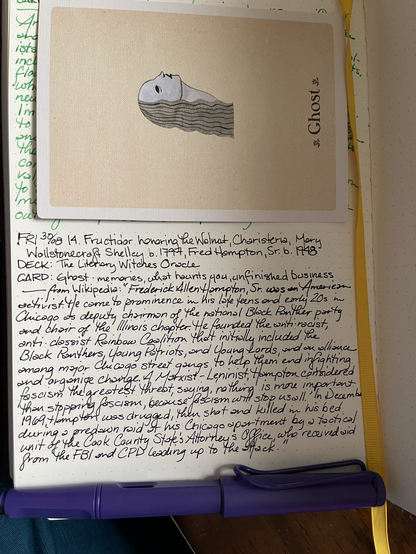 Ghost
FRI 30/08 14. Fructidor honoring the Walnut, Charisteria, Mary
Wollstonecraft Shelley b. 1797, Fred Hampton, Sr. b. 1948
DECK: The Literary Witches Oracle
CARD: Ghost - memories, what haunts you, unfinished business
— from Wikipedia: "Frederick Allen Hampton, Sr. was an American
activist. He came to prominence in his late teens and early 20s in
Chicago as deputy chairman of the national Black Panther party
and chair of the Illinois chapter. He founded the anti-racist,
anti-classist Rainbow Coalition that initially included the
Black Panthers, Young Patriots, and Young Lords, and an alliance
among major Chicago street gangs to help them end infighting
and organize change. A Marxist-Leninist, Hampton considered
fascism the greatest threat, saying, nothing is more important
than stopping fascism, because fascism will stop us all.' In December
1969, Hampton was drugged, then shot and killed in his bed
during a predawn raid at his Chicago apartment by a tactical
unit of the Cook County State's Attorney's Office, who received aid
from the FBI and CPD leading up to the attack."